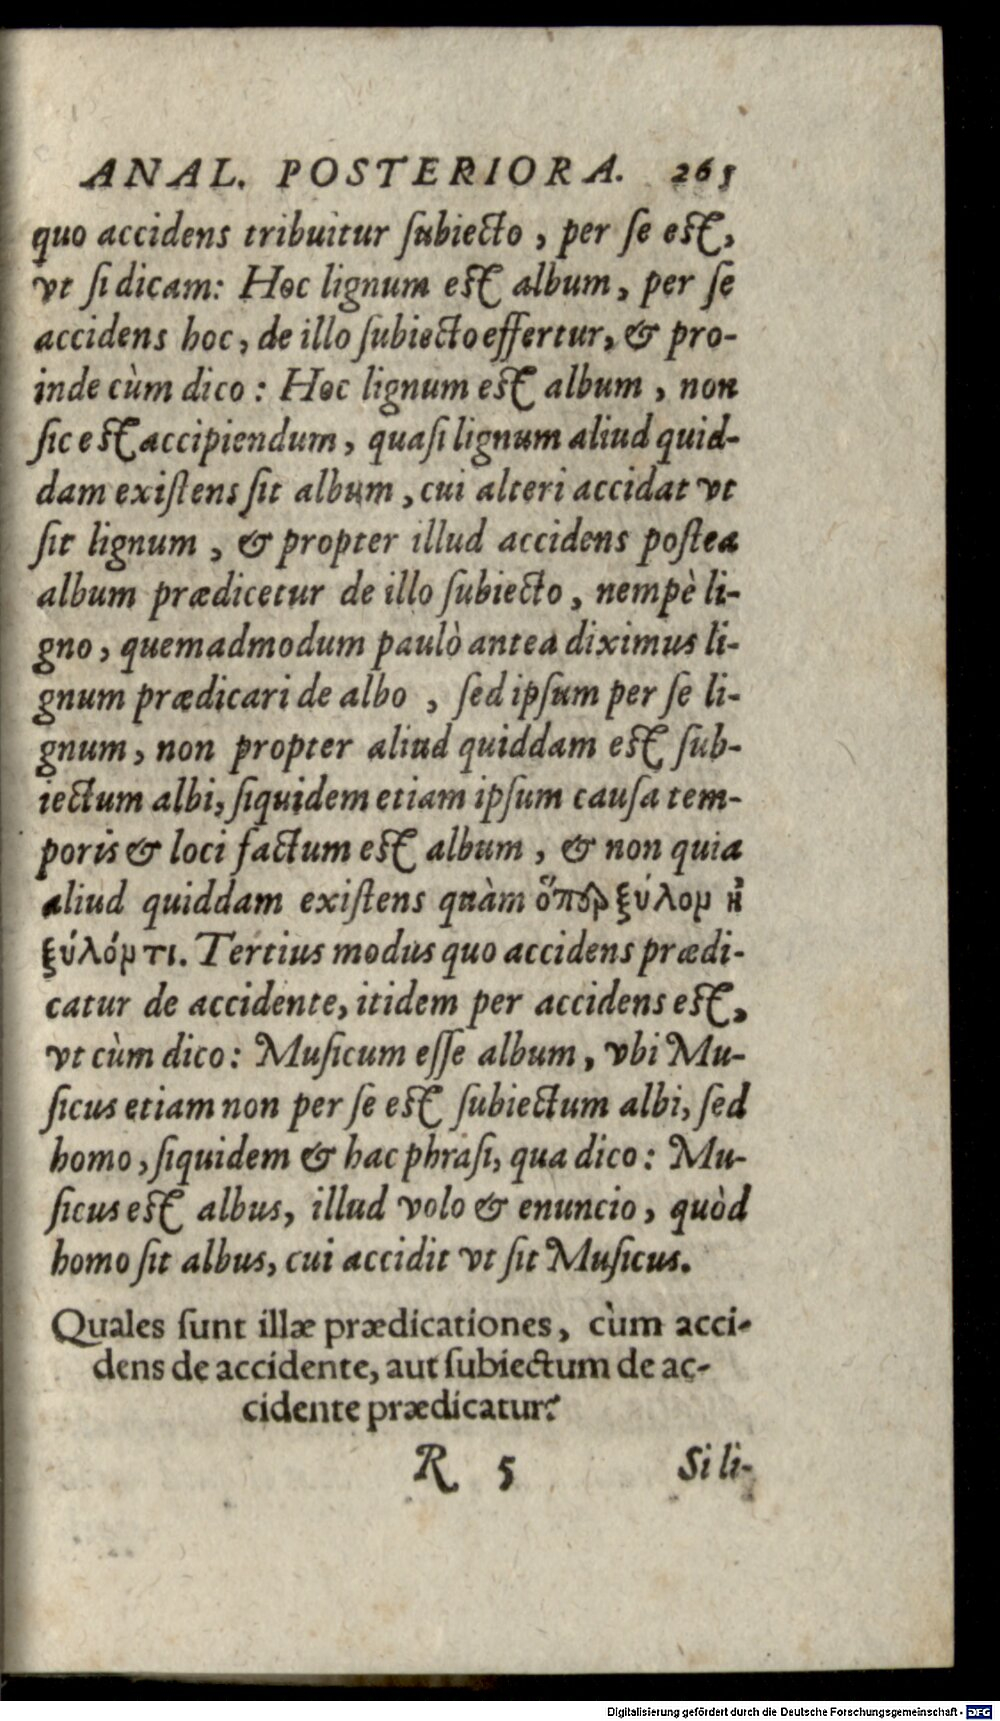 ANAL. POSTERIORA. 265
quo accidens tribuitur ſubiecto, per ſe eſt,
vt ſi dicam: Hoc lignum eſt album, per ſe
accidens hoc, de illo ſubiecto effertur, & pro-
inde cùm dico: Hoc lignum eſt album, non
ſic eſt accipiendum, quaſi lignum aliud quid-
dam exiſtens ſit album, cui alteri accidat vt
ſit lignum, & propter illud accidens poſtea
album prædicetur de illo ſubiecto, nempè li-
gno, quemadmodum paulò antea diximus li-
gnum prædicari de albo, ſed ipſum per ſe li-
gnum, non propter aliud quiddam eſt ſub-
iectum albi, ſiquidem etiam ipſum cauſa tem-
poris & loci factum eſt album, & non quia
aliud quiddam exiſtens quàm ὅπερ ξύλον ἢ
ξύλόν τι. Tertius modus quo accidens prædi-
catur de accidente, itidem per accidens eſt,
vt cùm dico: Muſicum eſſe album, vbi Mu-
ſicus etiam non per ſe eſt ſubiectum albi, ſed
homo, ſiquidem & hac phraſi, qua dico: Mu-
ſicus eſt albus, illud volo & enuncio, quòd
homo ſit albus, cui accidit vt ſit Muſicus.
Quales ſunt illæ prædicationes, cùm acci-
dens de accidente, aut ſubiectum de ac-
cidente prædicatur?
R 5 Si li-
Digitalisierung gefördert durch die Deutsche Forschungsgemeinschaft - DFG